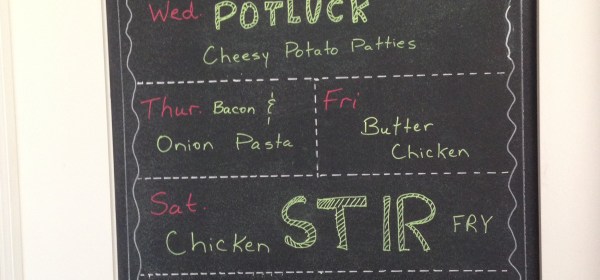 Wed. POTLUCK
Cheesy Potato Patties
Thur. Bacon &
Onion Pasta
Fri
Butter
Chicken
Sat.
Chicken STIR FRY